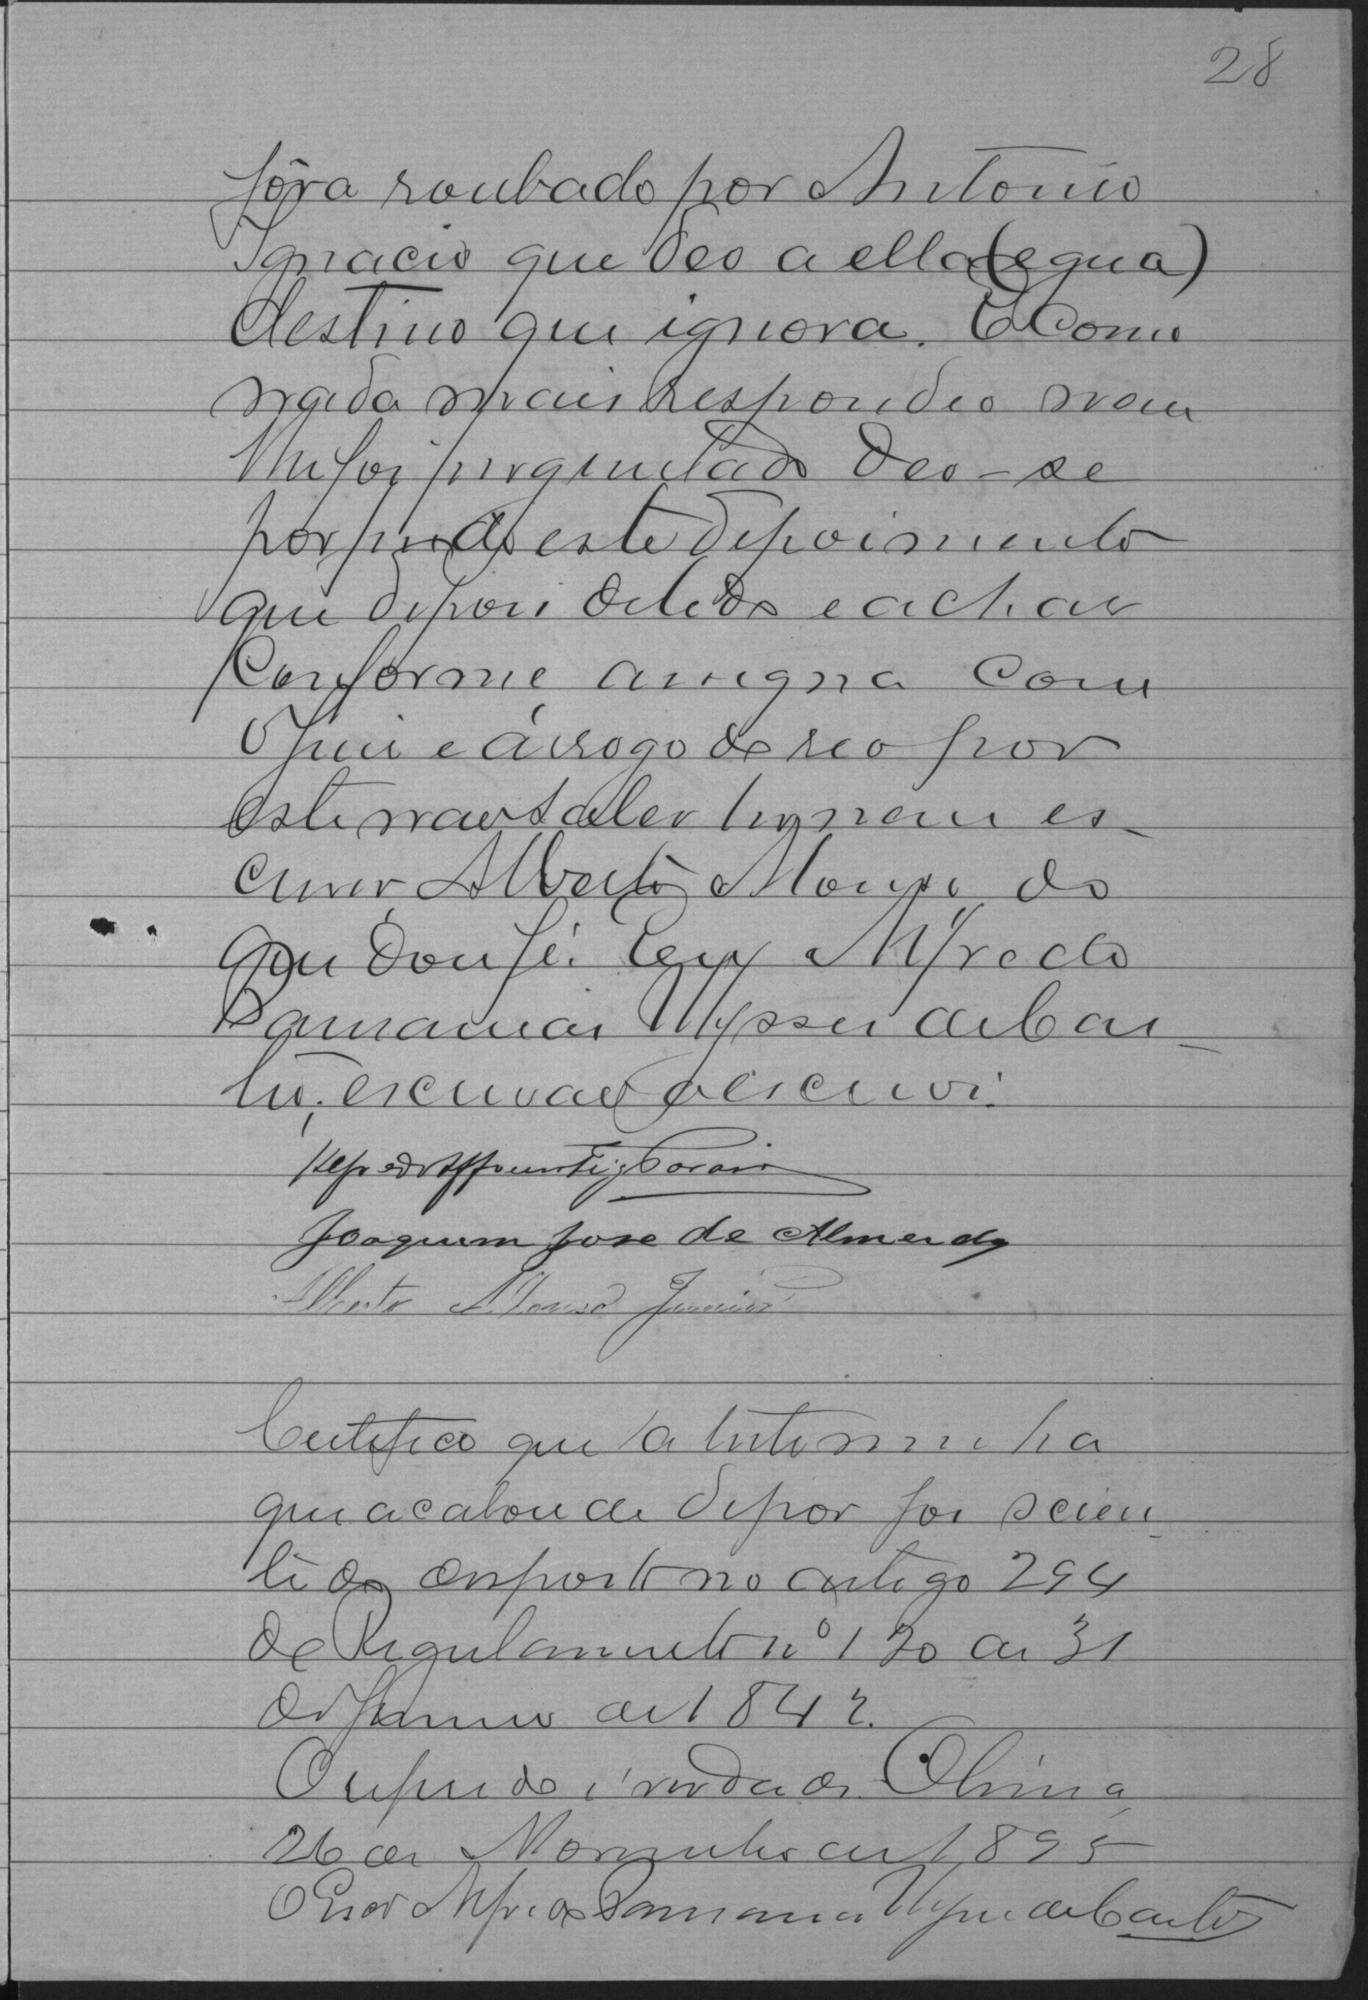 28
fôra roubado por Antonio
Ignacio que deo a ella (egua)
destino que ignora. E como
nada mais respondeo nem
lhe foi perguntado deo-se
por findo este depoimento
que depois de lido e achar
conforme assigna com
o juiz e á rogo do reo por
este não saber ler nem es-
crever Alberto Afonso do
que dou fé. Eu, Alfredo
Damascio Ulysses de Cas-
tro, escrivão o escrevi.
Joaquim Jose de Almeida
Alberto Afonso Junior
Certifico que a testemunha
que acabou de depor foi scien-
te do disposto no artigo 294
do Regulamento nº 120 de 31
de Janeiro de 1842.
O referido é verdade.
26 de Novembro de 1895
O Escr Alfredo Ulysses de Castro